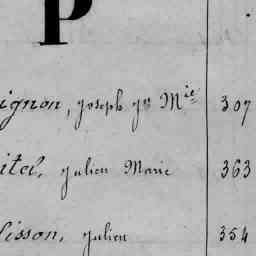 P
ignon, Joseph Jn Mie 307
itel, Julien Marie 363
lisson, Julien 354